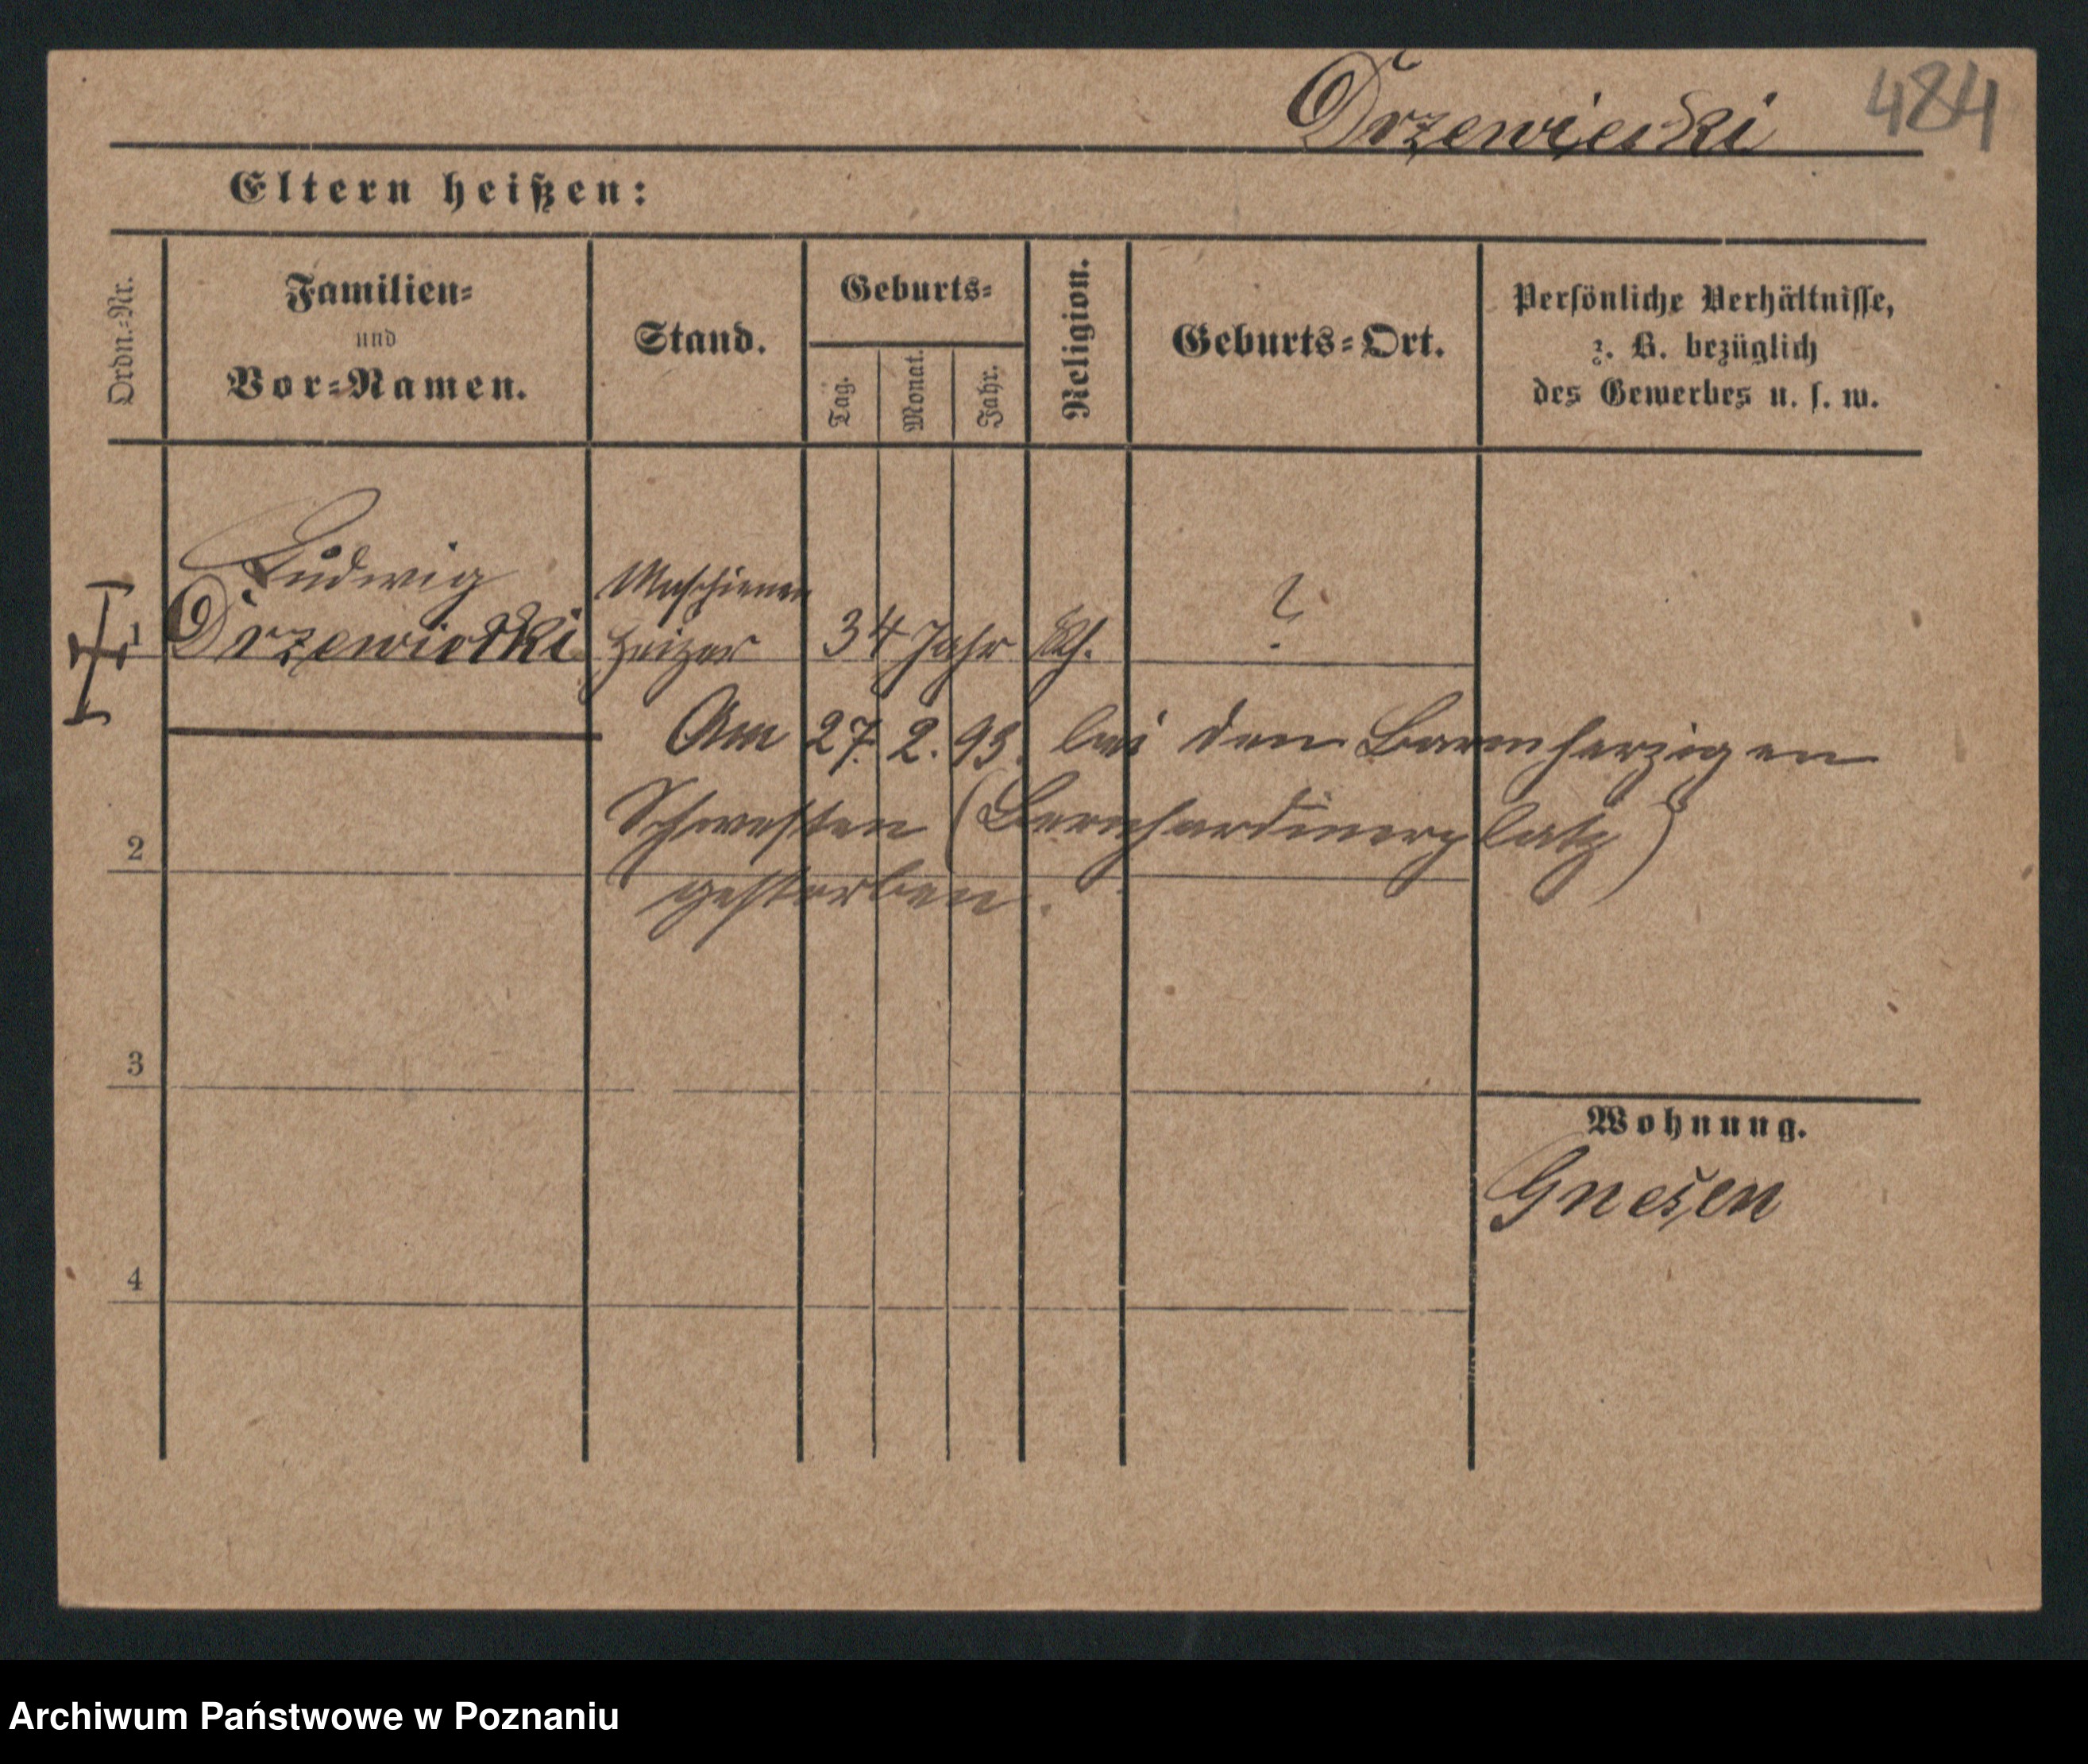 Drzewiecki 484
Eltern heißen:
Ordn.-Nr.
Familien-
und
Vor-Namen.
Stand.
Geburts-
Tag.
Monat.
Jahr.
Religion.
Geburts-Ort.
Persönliche Verhältnisse,
z. B. bezüglich
des Gewerbes u. s. w.
Ludwig
Maschienen
1 Drzewiecki heizer 34 Jahr Kth. ?
Am 27. 2. 93. bei den Barmherzigen
Schwestern (Bernhardinerplatz)
2
gestorben.
3
Wohnung.
Gnesen
4
Archiwum Państwowe w Poznaniu